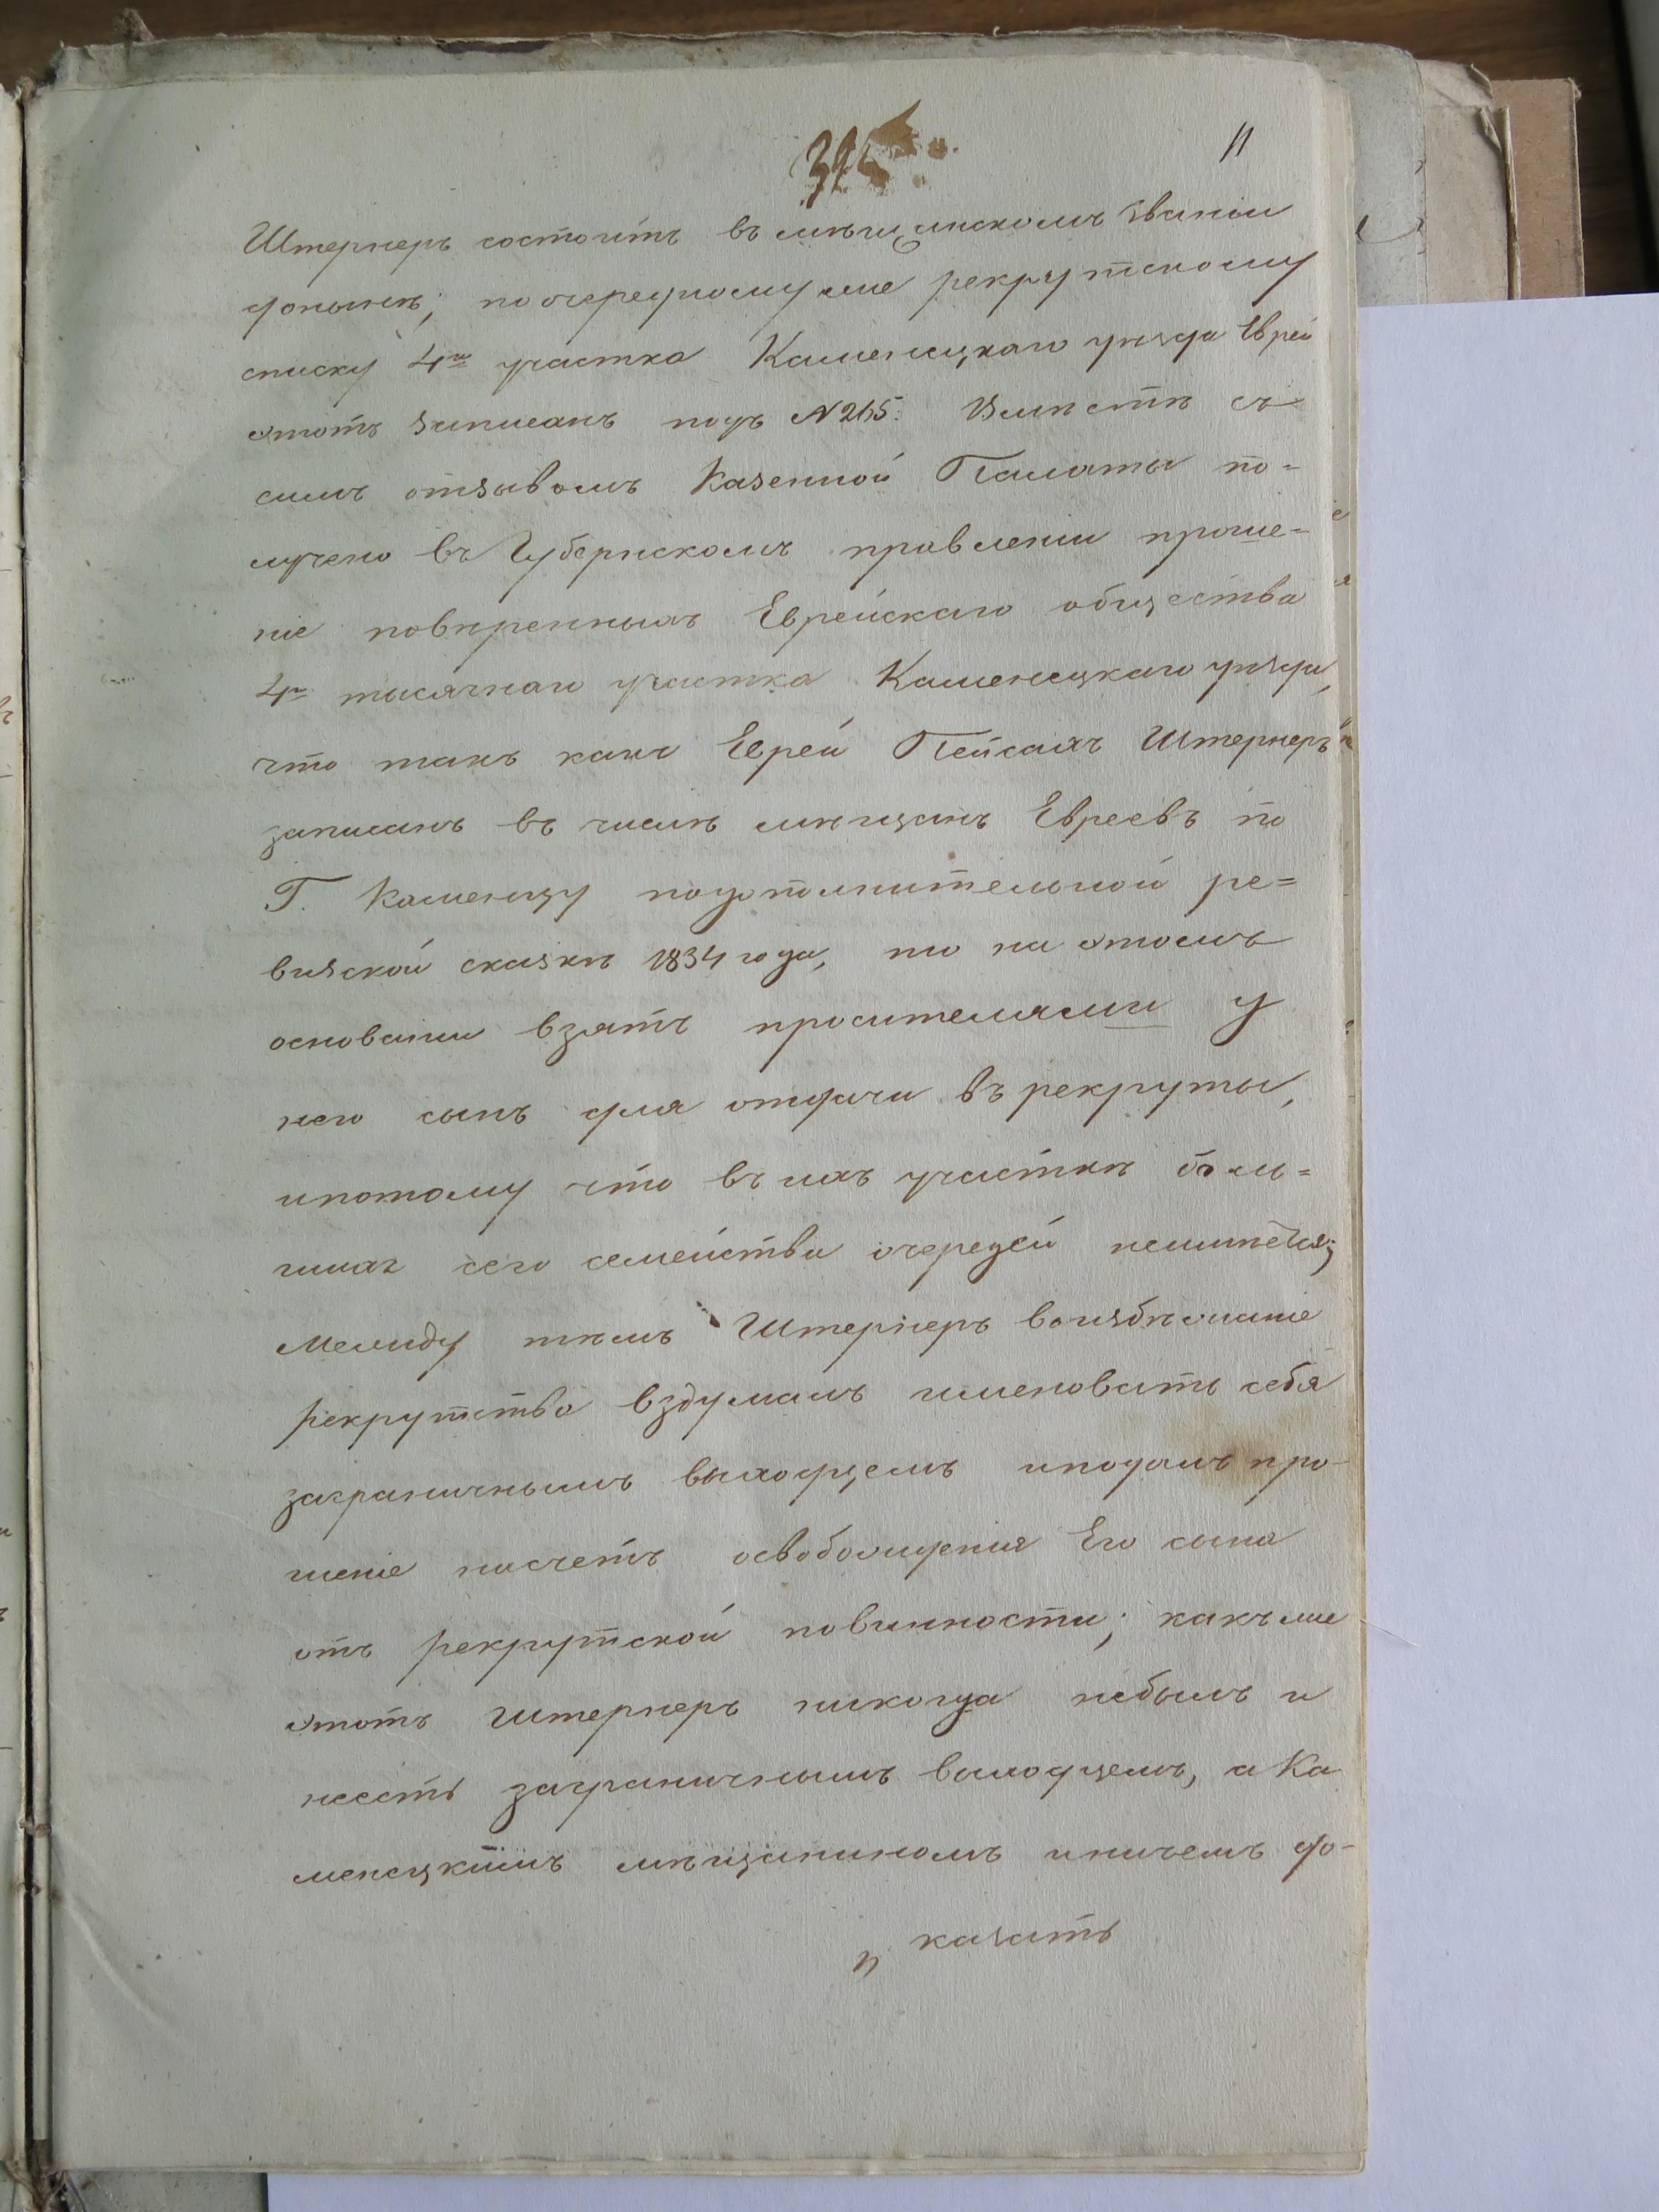 11
Штернеръ состоитъ въ мѣщанскомъ званіи
донынѣ; по очередному же рекрутскому
списку 4го участка Каменецкаго уѣзда Еврей
этотъ записанъ подъ №265. Вмѣстѣ съ
симъ отзывомъ Казенной Палаты по=
лучено въ Губернскомъ правленіи проше=
ніе повѣренныхъ Еврейскаго общества
4го тысячнаго участка Каменецкаго уѣзда,
что такъ какъ Еврей Пейсахъ Штернеръ
записанъ въ числѣ мѣщанъ Евреевъ по
Г. Каменцу подополнительной ре=
визской сказкѣ 1834 года, то на этомъ
основаніи взятъ просителями у
него сынъ для отдачи въ рекруты,
ипотому что въ ихъ участкѣ боль=
шихъ сего семейства очередей неимѣется;
Между тѣмъ Штернеръ воизбѣжаніе
рекрутства вздумалъ именовать себя
заграничнымъ выходцемъ иподалъ про-
шеніе насчетъ освобожденія Его сына
отъ рекрутской повинности; какъ же
этотъ Штернеръ никогда небылъ и
неесть заграничнымъ выходцемъ, а Ка
менецкимъ мѣщаниномъ иничемъ до-
казать